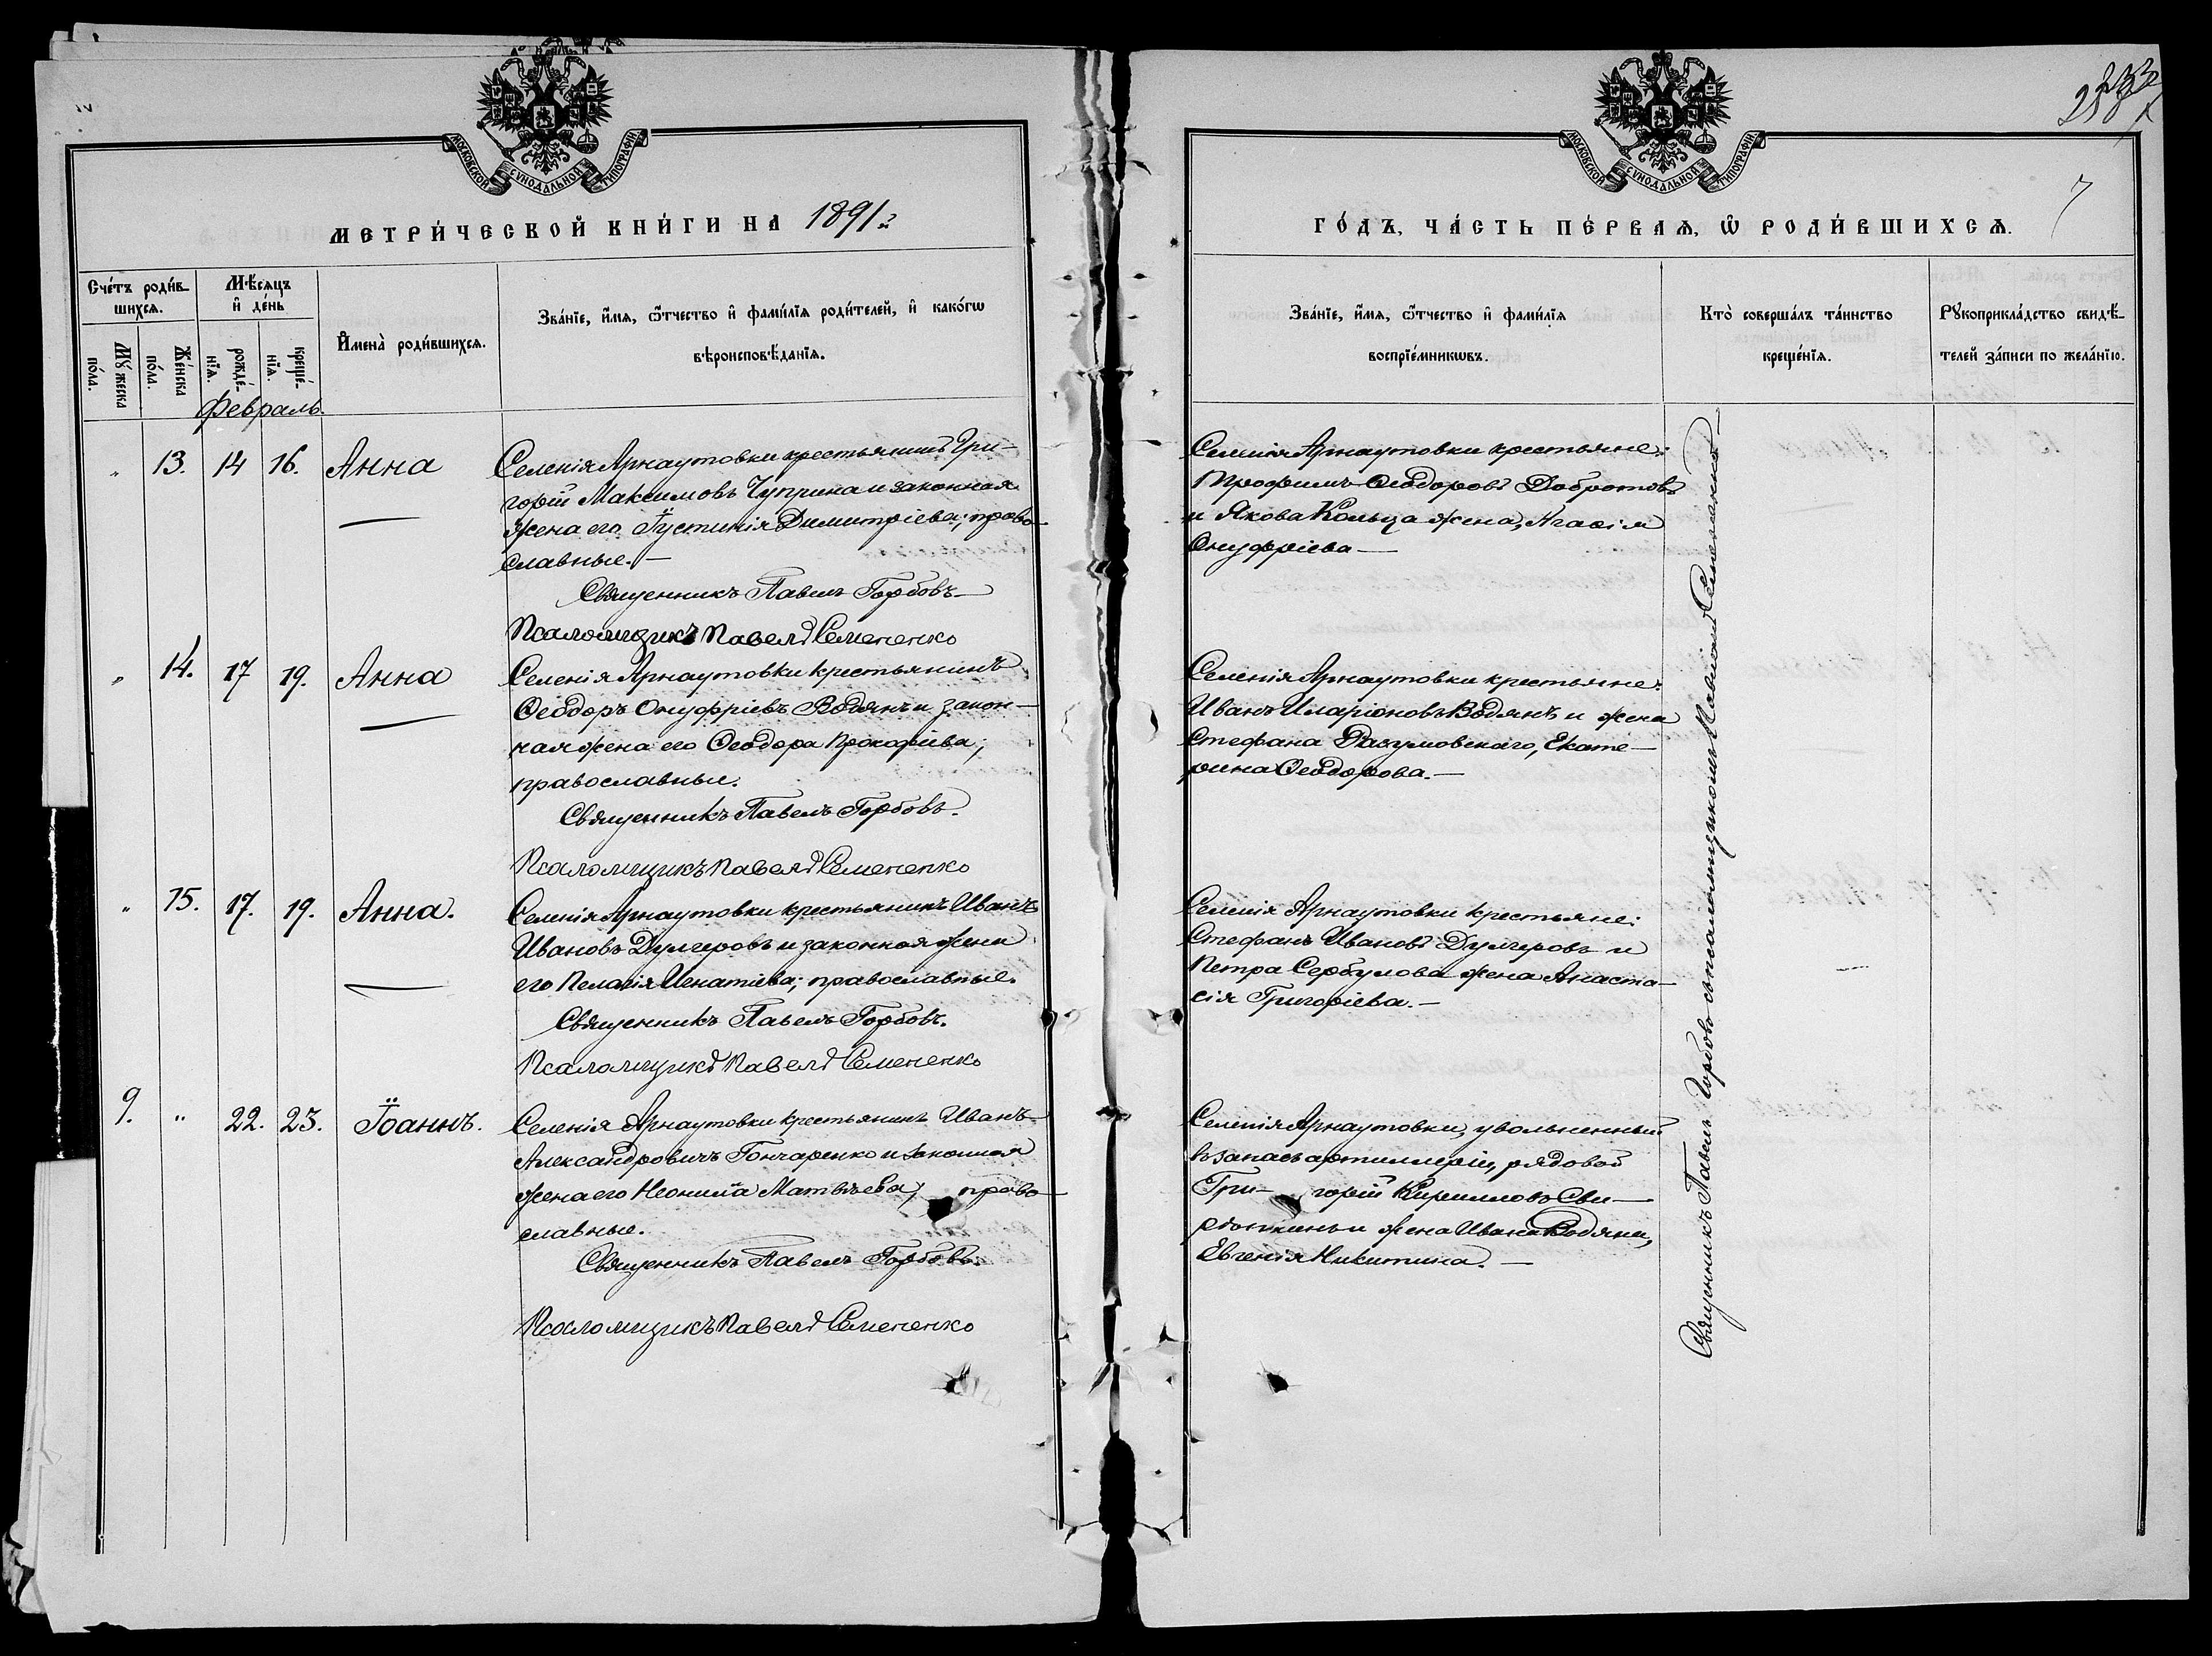 МОСКОВСКОЙ СѴНОДАЛЬНОЙ ТИПОГРАФІИ
МЕТРИ́ЧЕСКОЙ КНИ́ГИ НА 1891 г.
Сче́тъ роди́в-
шихся.
Мѣ́сяцъ
и҆ де́нь
Му́жеска
по́ла.
Же́нска
по́ла.
рожде́-
нїя.
креще́-
нїя.
И҆мена̀ роди́вшихся.
Зва́нїе, и҆́мя, ѻ҆́тчество и҆ фами́лїя роди́телей, и҆ како́гѡ
вѣроисповѣ́данїя.
Февраль.
„ 13. 14 16. Анна
Селенія Арнаутовки крестьянинъ Гри-
горій Максимовъ Чуприна и законная
жена его Іустинія Димитріева; право-
славные.-
Священникъ Павелъ Горбовъ
Псаломщикъ Павелъ Семененко
„ 14. 17 19. Анна
Селенія Арнаутовки крестьянинъ
Ѳеодоръ Онуфріевъ Водянъ и закон-
ная жена его Ѳеодора Прокофіева;
православные.
Священникъ Павелъ Горбовъ.
Псаломщикъ Павелъ Семененко
„ 15. 17. 19. Анна.
Селенія Арнаутовки крестьянинъ Иванъ
Ивановъ Дулгеровъ и законная жена
его Пелагія Игнатіева; православные.
Священникъ Павелъ Горбовъ.
Псаломщикъ Павелъ Семененко
9. „ 22. 23. Іоаннъ.
Селенія Арнаутовки крестьянинъ Иванъ
Александровичъ Гончаренко и законная
жена его Неонила Матвѣева, право-
славные.
Священникъ Павелъ Горбовъ.
Псаломщикъ Павелъ Семененко
МОСКОВСКОЙ СѴНОДАЛЬНОЙ ТИПОГРАФІИ
7
ГО́ДЪ, ЧА́СТЬ ПЕ́РВАЯ, Ѡ҆ РОДИ́ВШИХСЯ.
Зва́нїе, и҆́мя, ѻ҆́тчество и҆ фами́лїя
воспрїе́мникѡвъ.
Кто̀ соверша́лъ та́инство
креще́нїя.
Рꙋкоприкла́дство свидѣ́-
телей за́писи по жела́нїю.
Селенія Арнаутовки крестьяне:
Трофимъ Ѳеодоровъ Добротовъ
и Якова Кольца жена, Агафія
Онуфріева
Селенія Арнаутовки крестьяне:
Иванъ Иларіоновъ Водянъ и жена
Стефана Разумовскаго, Екате-
рина Ѳеодорова.-
Селенія Арнаутовки крестьяне:
Стефанъ Ивановъ Дулгеровъ и
Петра Сербулова жена Анаста-
сія Григоріева.-
Селенія Арнаутовки, уволенный
въ запасъ артиллеріи, рядовой
Гри- горій Кирилловъ Сви-
и жена Ивана Водяна,
Евгенія Никитина.-
Священникъ Павелъ Горбовъ съ псаломщикомъ Павломъ Семененко